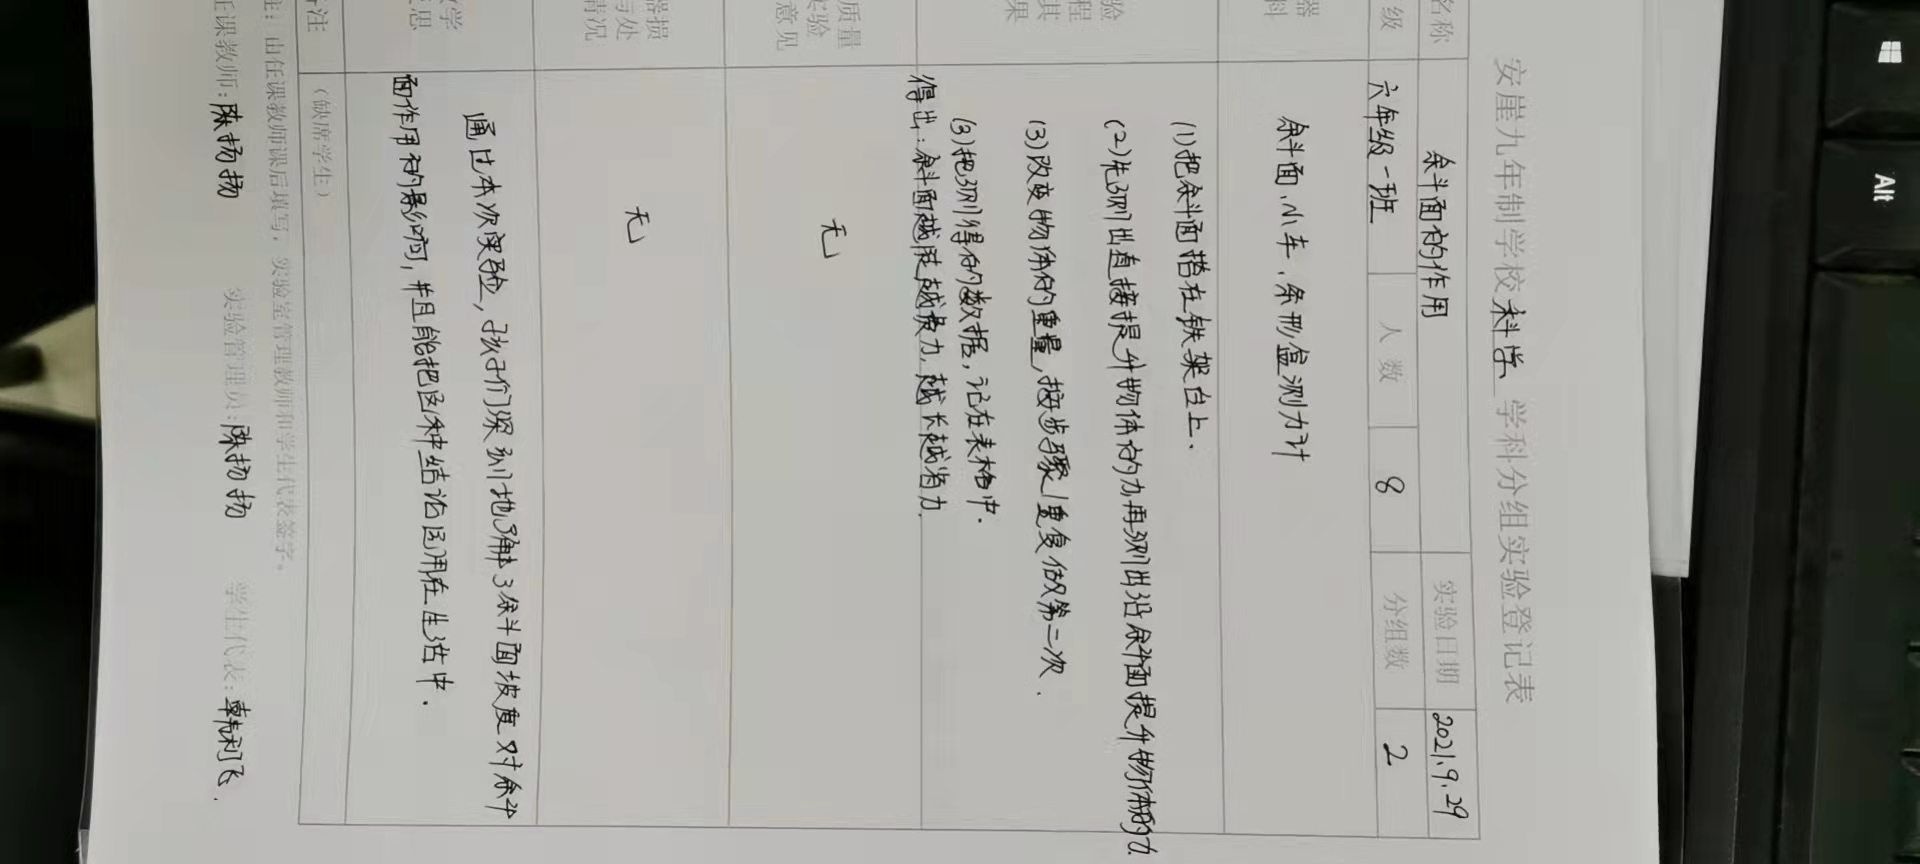 安崖九年制学校科学 学科分组实验登记表
名称 斜面的作用 实验日期 2021.9.29
级 六年级一班 人数 8 分组数 2
器
料
斜面、小车、条形盒测力计
验
程
其
果
(1)把斜面搭在铁架台上.
(2)先测出直接提升物体的力,再测出沿斜面提升物体的力
(3)改变物体的重量,按步骤1重复做第二次.
(3)把测得的数据,记在表格中.
得出:斜面越陡越费力,越长越省力.
质量
实验
意见
无
器损
与处
情况
无
学
思
通过本次实验,孩子们深刻地了解了斜面坡度对斜
面作用的影响,并且能把这种结论运用在生活中.
注 (缺席学生)
注: 由任课教师课后填写,实验室管理教师和学生代表签字。
任课教师: 陈扬扬 实验管理员: 陈扬扬 学生代表: 韩利飞.
Alt